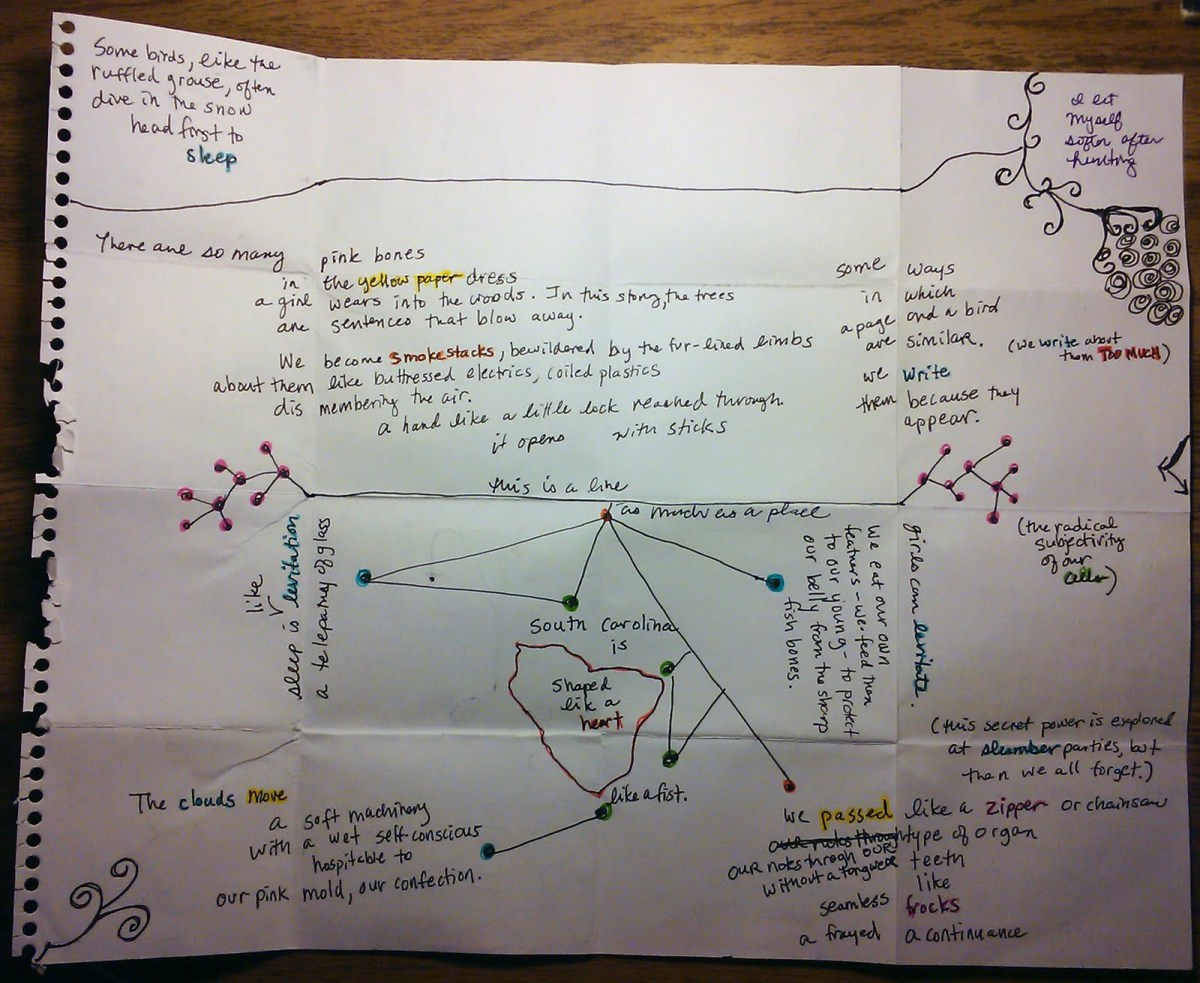 Some birds, like the
ruffled grouse, often
dive in the snow
head first to
sleep
I let
myself
soften after
hunting
There are so many pink bones
in the yellow paper dress
a girl wears into the woods. In this story, the trees
are sentences that blow away.
We become smokestacks, bewildered by the fur-lined limbs
about them like buttressed electrics, coiled plastics
dis membering the air.
a hand like a little lock reached through.
it opens with sticks
some ways
in which
a page and a bird
are similar.
(we write about
them TOO MUCH)
we write
them because they
appear.
this is a line
as much as a place
like
sleep is levitation
a telepathy of glass
South Carolina
is
shaped
like a
heart
like a fist.
We eat our own
feathers - we feed them
to our young - to protect
our belly from the sharp
fish bones.
girls can levitate.
(the radical
subjectivity
of our
cells)
(this secret power is explored
at slumber parties, but
then we all forget.)
The clouds move
a soft machinery
with a wet self-conscious
hospitable to
our pink mold, our confection.
we passed like a zipper or chainsaw
our notes through type of organ
OUR notes throgh OUR teeth
without a tongue
like
seamless frocks
a frayed a continuance